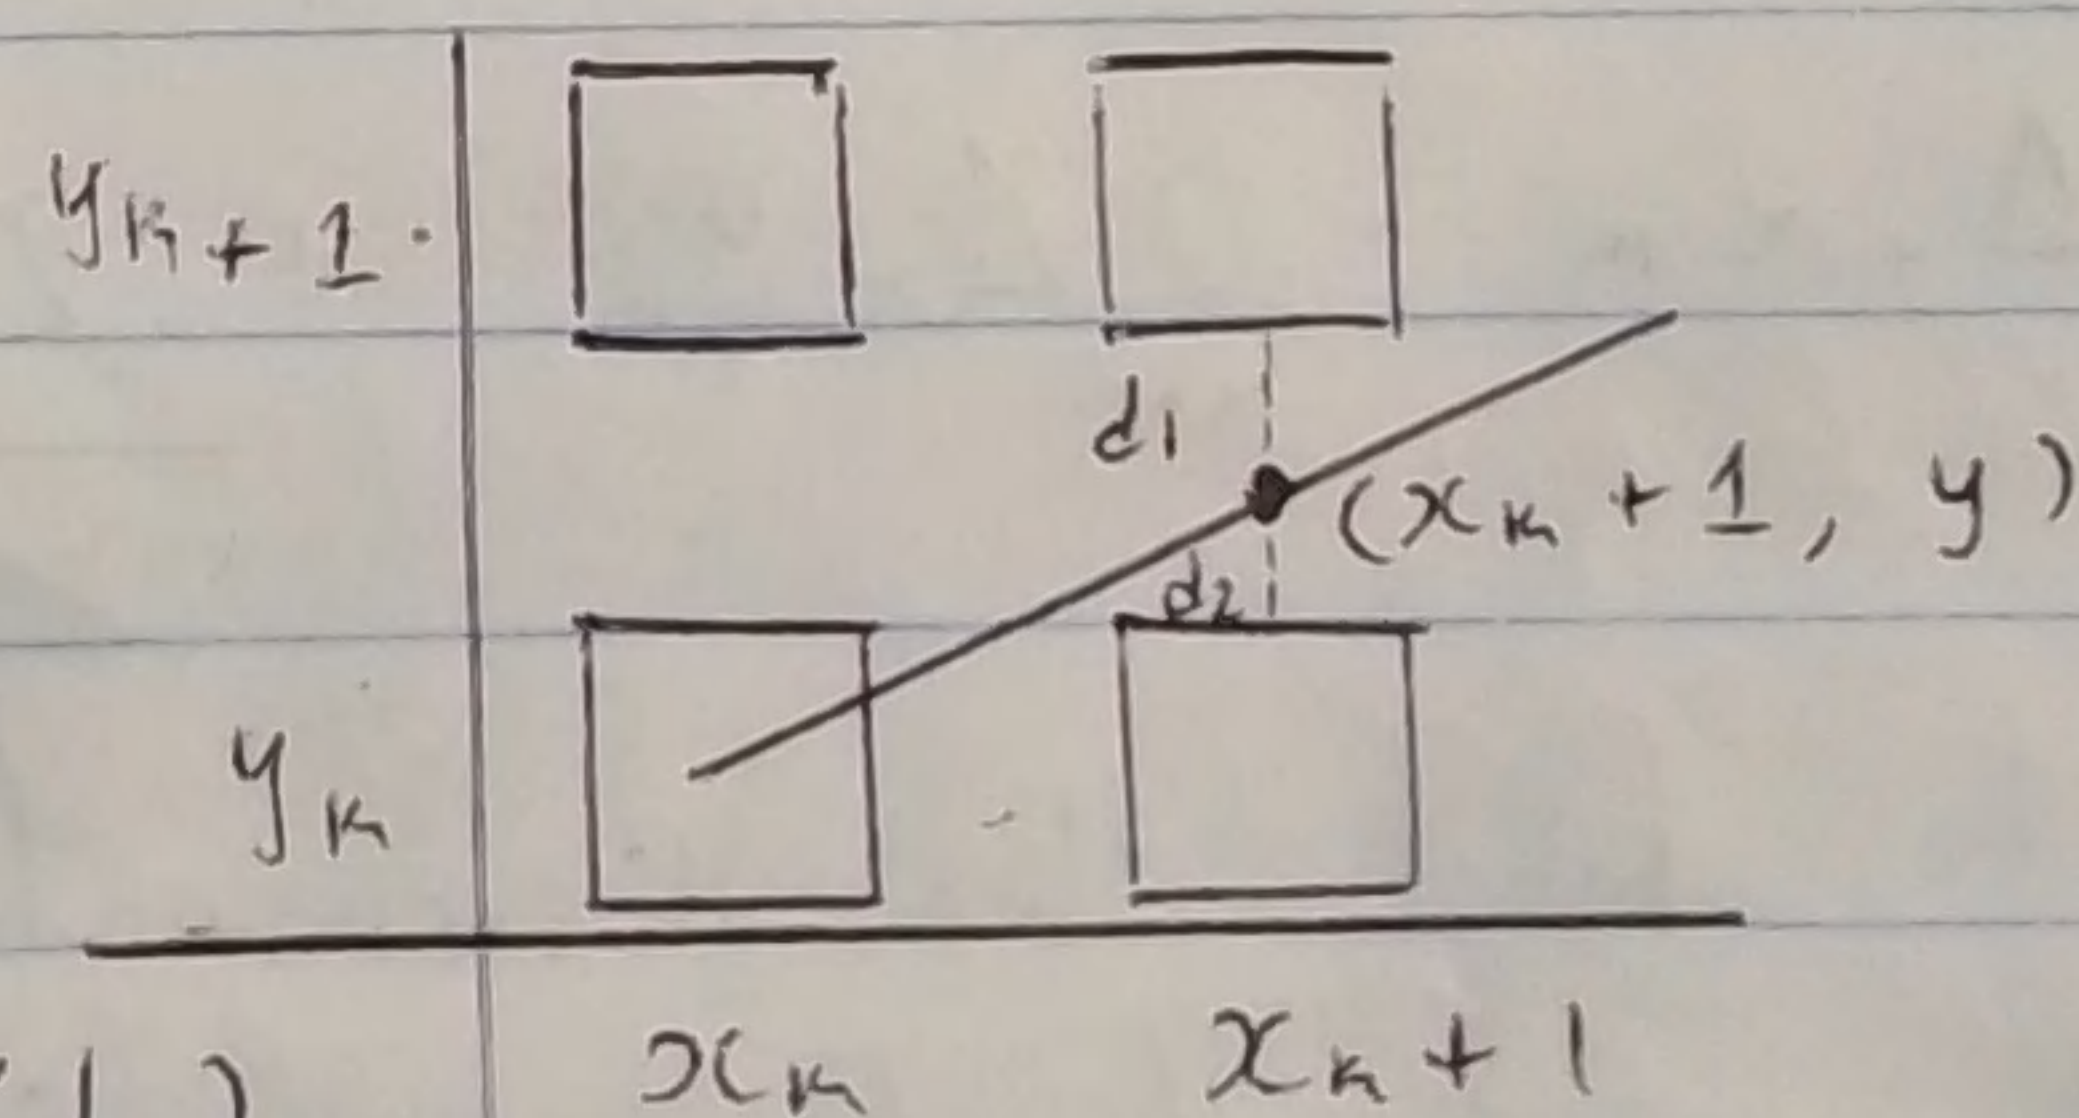 yk + 1.
d1
(xk + 1, y)
d2
yk
)
xk xk + 1